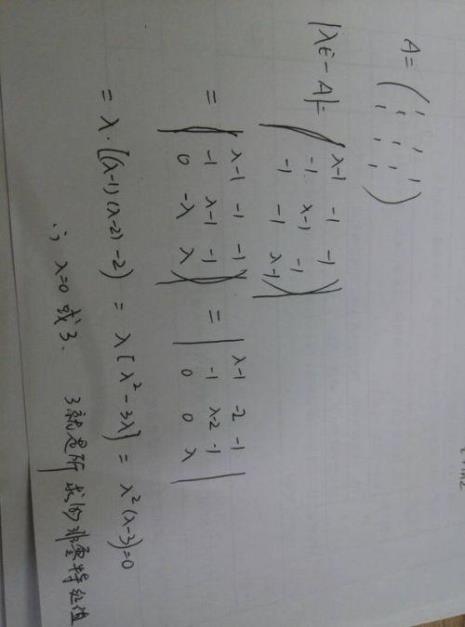 A = ( 1 1 1
1 1 1
1 1 1 )
|λE - A| = | λ-1 -1 -1
-1 λ-1 -1
-1 -1 λ-1 |
= | λ-1 -1 -1
-1 λ-1 -1
0 -λ λ | = | λ-1 -2 -1
-1 λ-2 -1
0 0 λ |
= λ·[(λ-1)(λ-2)-2) = λ[λ²-3λ] = λ²(λ-3)=0
∴ λ=0 或 3. 3就是所求的非零特征值